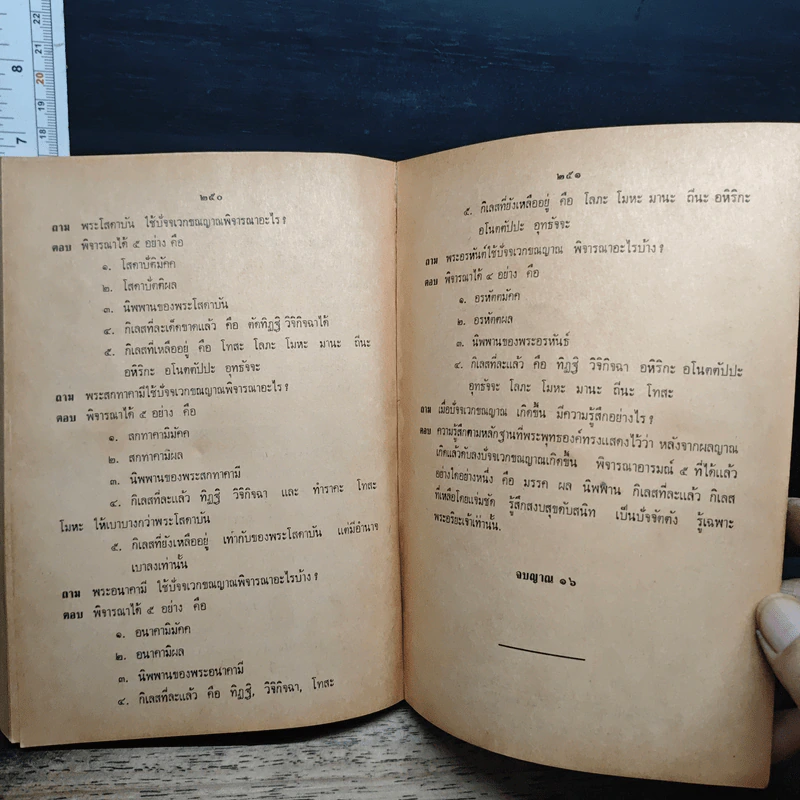 8
7
22
21
20
19
18
๒๕๐
ถาม พระโสดาบัน ใช้ปัจจเวกขณญาณพิจารณาอะไร ?
ตอบ พิจารณาได้ ๕ อย่าง คือ
๑. โสดาปัตติมัคค
๒. โสดาปัตติผล
๓. นิพพานของพระโสดาบัน
๔. กิเลสที่ละเด็ดขาดแล้ว คือ ตัดทิฏฐิ วิจิกิจฉาได้
๕. กิเลสที่เหลืออยู่ คือ โทสะ โลภะ โมหะ มานะ ถีนะ
อหิริกะ อโนตตัปปะ อุทธัจจะ
ถาม พระสกทาคามีใช้ปัจจเวกขณญาณพิจารณาอะไร ?
ตอบ พิจารณาได้ ๕ อย่าง คือ
๑. สกทาคามิมัคค
๒. สกทาคามิผล
๓. นิพพานของพระสกทาคามี
๔. กิเลสที่ละแล้ว ทิฏฐิ วิจิกิจฉา และ ทำราคะ โทสะ
โมหะ ให้เบาบางกว่าพระโสดาบัน
๕. กิเลสที่ยังเหลืออยู่ เท่ากับของพระโสดาบัน แต่มีอำนาจ
เบาลงเท่านั้น
ถาม พระอนาคามี ใช้ปัจจเวกขณญาณพิจารณาอะไรบ้าง ?
ตอบ พิจารณาได้ ๕ อย่าง คือ
๑. อนาคามิมัคค
๒. อนาคามิผล
๓. นิพพานของพระอนาคามี
๔. กิเลสที่ละแล้ว คือ ทิฏฐิ, วิจิกิจฉา, โทสะ
๒๕๑
๕. กิเลสที่ยังเหลืออยู่ คือ โลภะ โมหะ มานะ ถีนะ อหิริกะ
อโนตตัปปะ อุทธัจจะ
ถาม พระอรหันต์ใช้ปัจจเวกขณญาณ พิจารณาอะไรบ้าง ?
ตอบ พิจารณาได้ ๔ อย่าง คือ
๑. อรหัตตมัคค
๒. อรหัตตผล
๓. นิพพานของพระอรหันธ์
๔. กิเลสที่ละแล้ว คือ ทิฏฐิ วิจิกิจฉา อหิริกะ อโนตตัปปะ
อุทธัจจะ โลภะ โมหะ มานะ ถีนะ โทสะ
ถาม เมื่อปัจจเวกขณญาณ เกิดขึ้น มีความรู้สึกอย่างไร ?
ตอบ ความรู้สึกตามหลักฐานที่พระพุทธองค์ทรงแสดงไว้ว่า หลังจากผลญาณ
เกิดแล้วดับลงปัจจเวกขณญาณเกิดขึ้น พิจารณาอารมณ์ ๕ ที่ได้แล้ว
อย่างใดอย่างหนึ่ง คือ มรรค ผล นิพพาน กิเลสที่ละแล้ว กิเลส
ที่เหลือโดยแจ่มชัด รู้สึกสงบสุขดับสนิท เป็นปัจจัตตัง รู้เฉพาะ
พระอริยะเจ้าเท่านั้น.
จบญาณ ๑๖